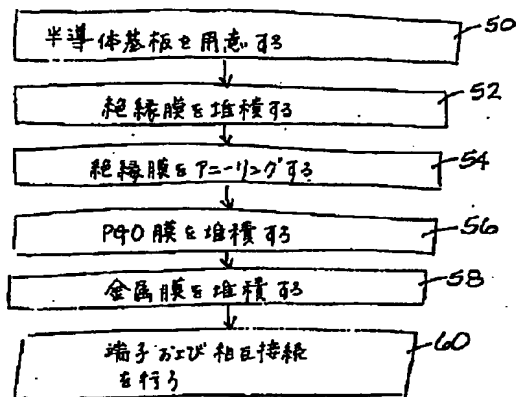 半導体基板を用意する
50
絶縁膜を堆積する
52
絶縁膜をアニーリングする
54
PGO膜を堆積する
56
金属膜を堆積する
58
端子および相互接続
を行う
60